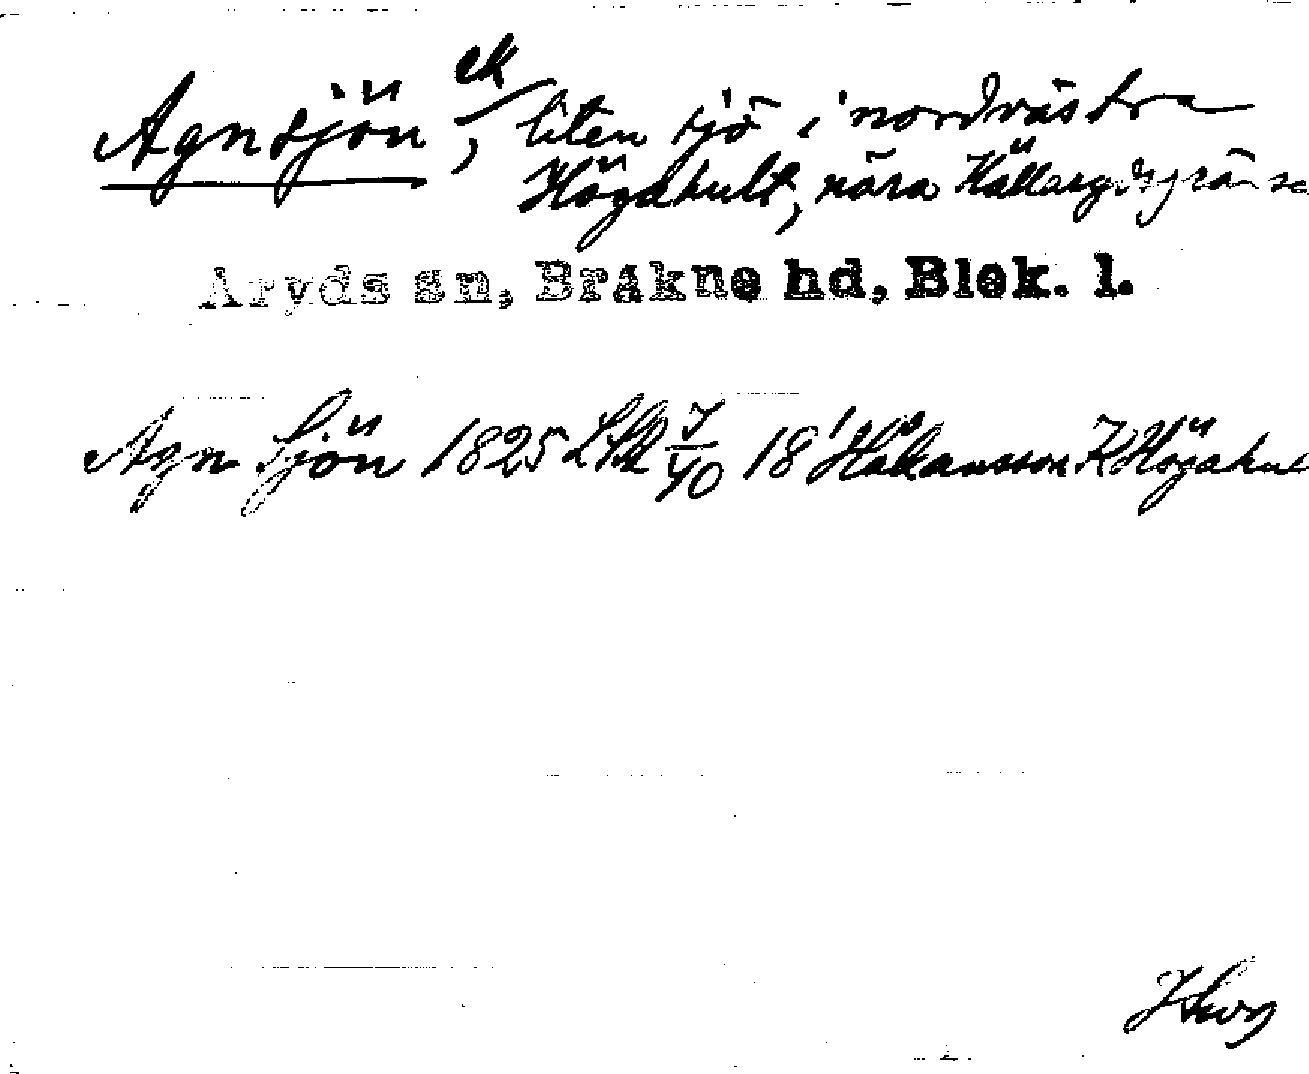 Agnsjön ek, liten sjö i nordvästra
Högahult, nära Hällarydsgräns
Åryds sn, Bräkne hd, Blek. l.
Agn Sjön 1825 LSA 18 Håkansson K Högahul